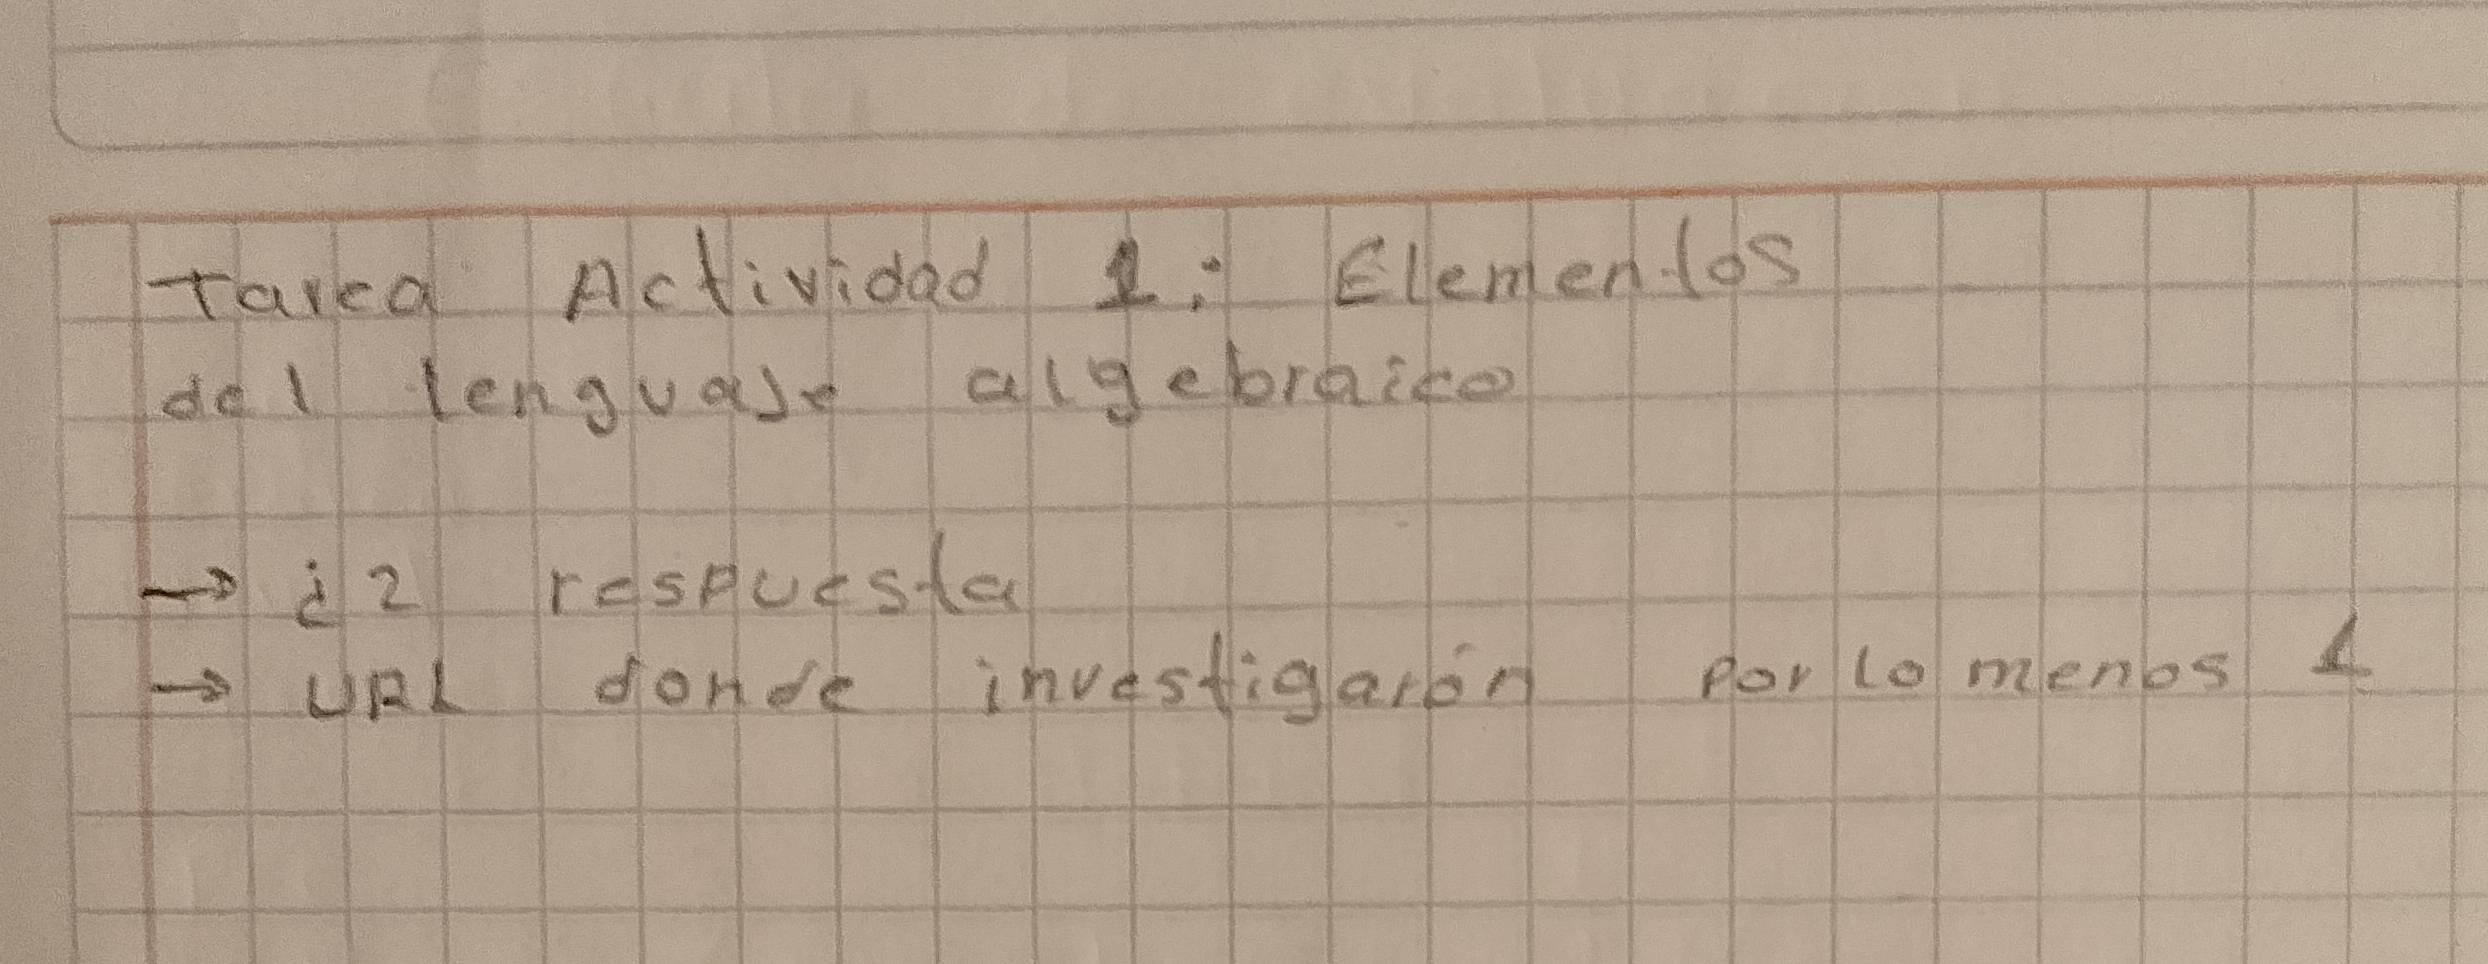 Tarea Actividad 1: Elementos
del lenguaje algebraico
→ ¿2 respuesta
→ URL donde investigarón por lo menos 1